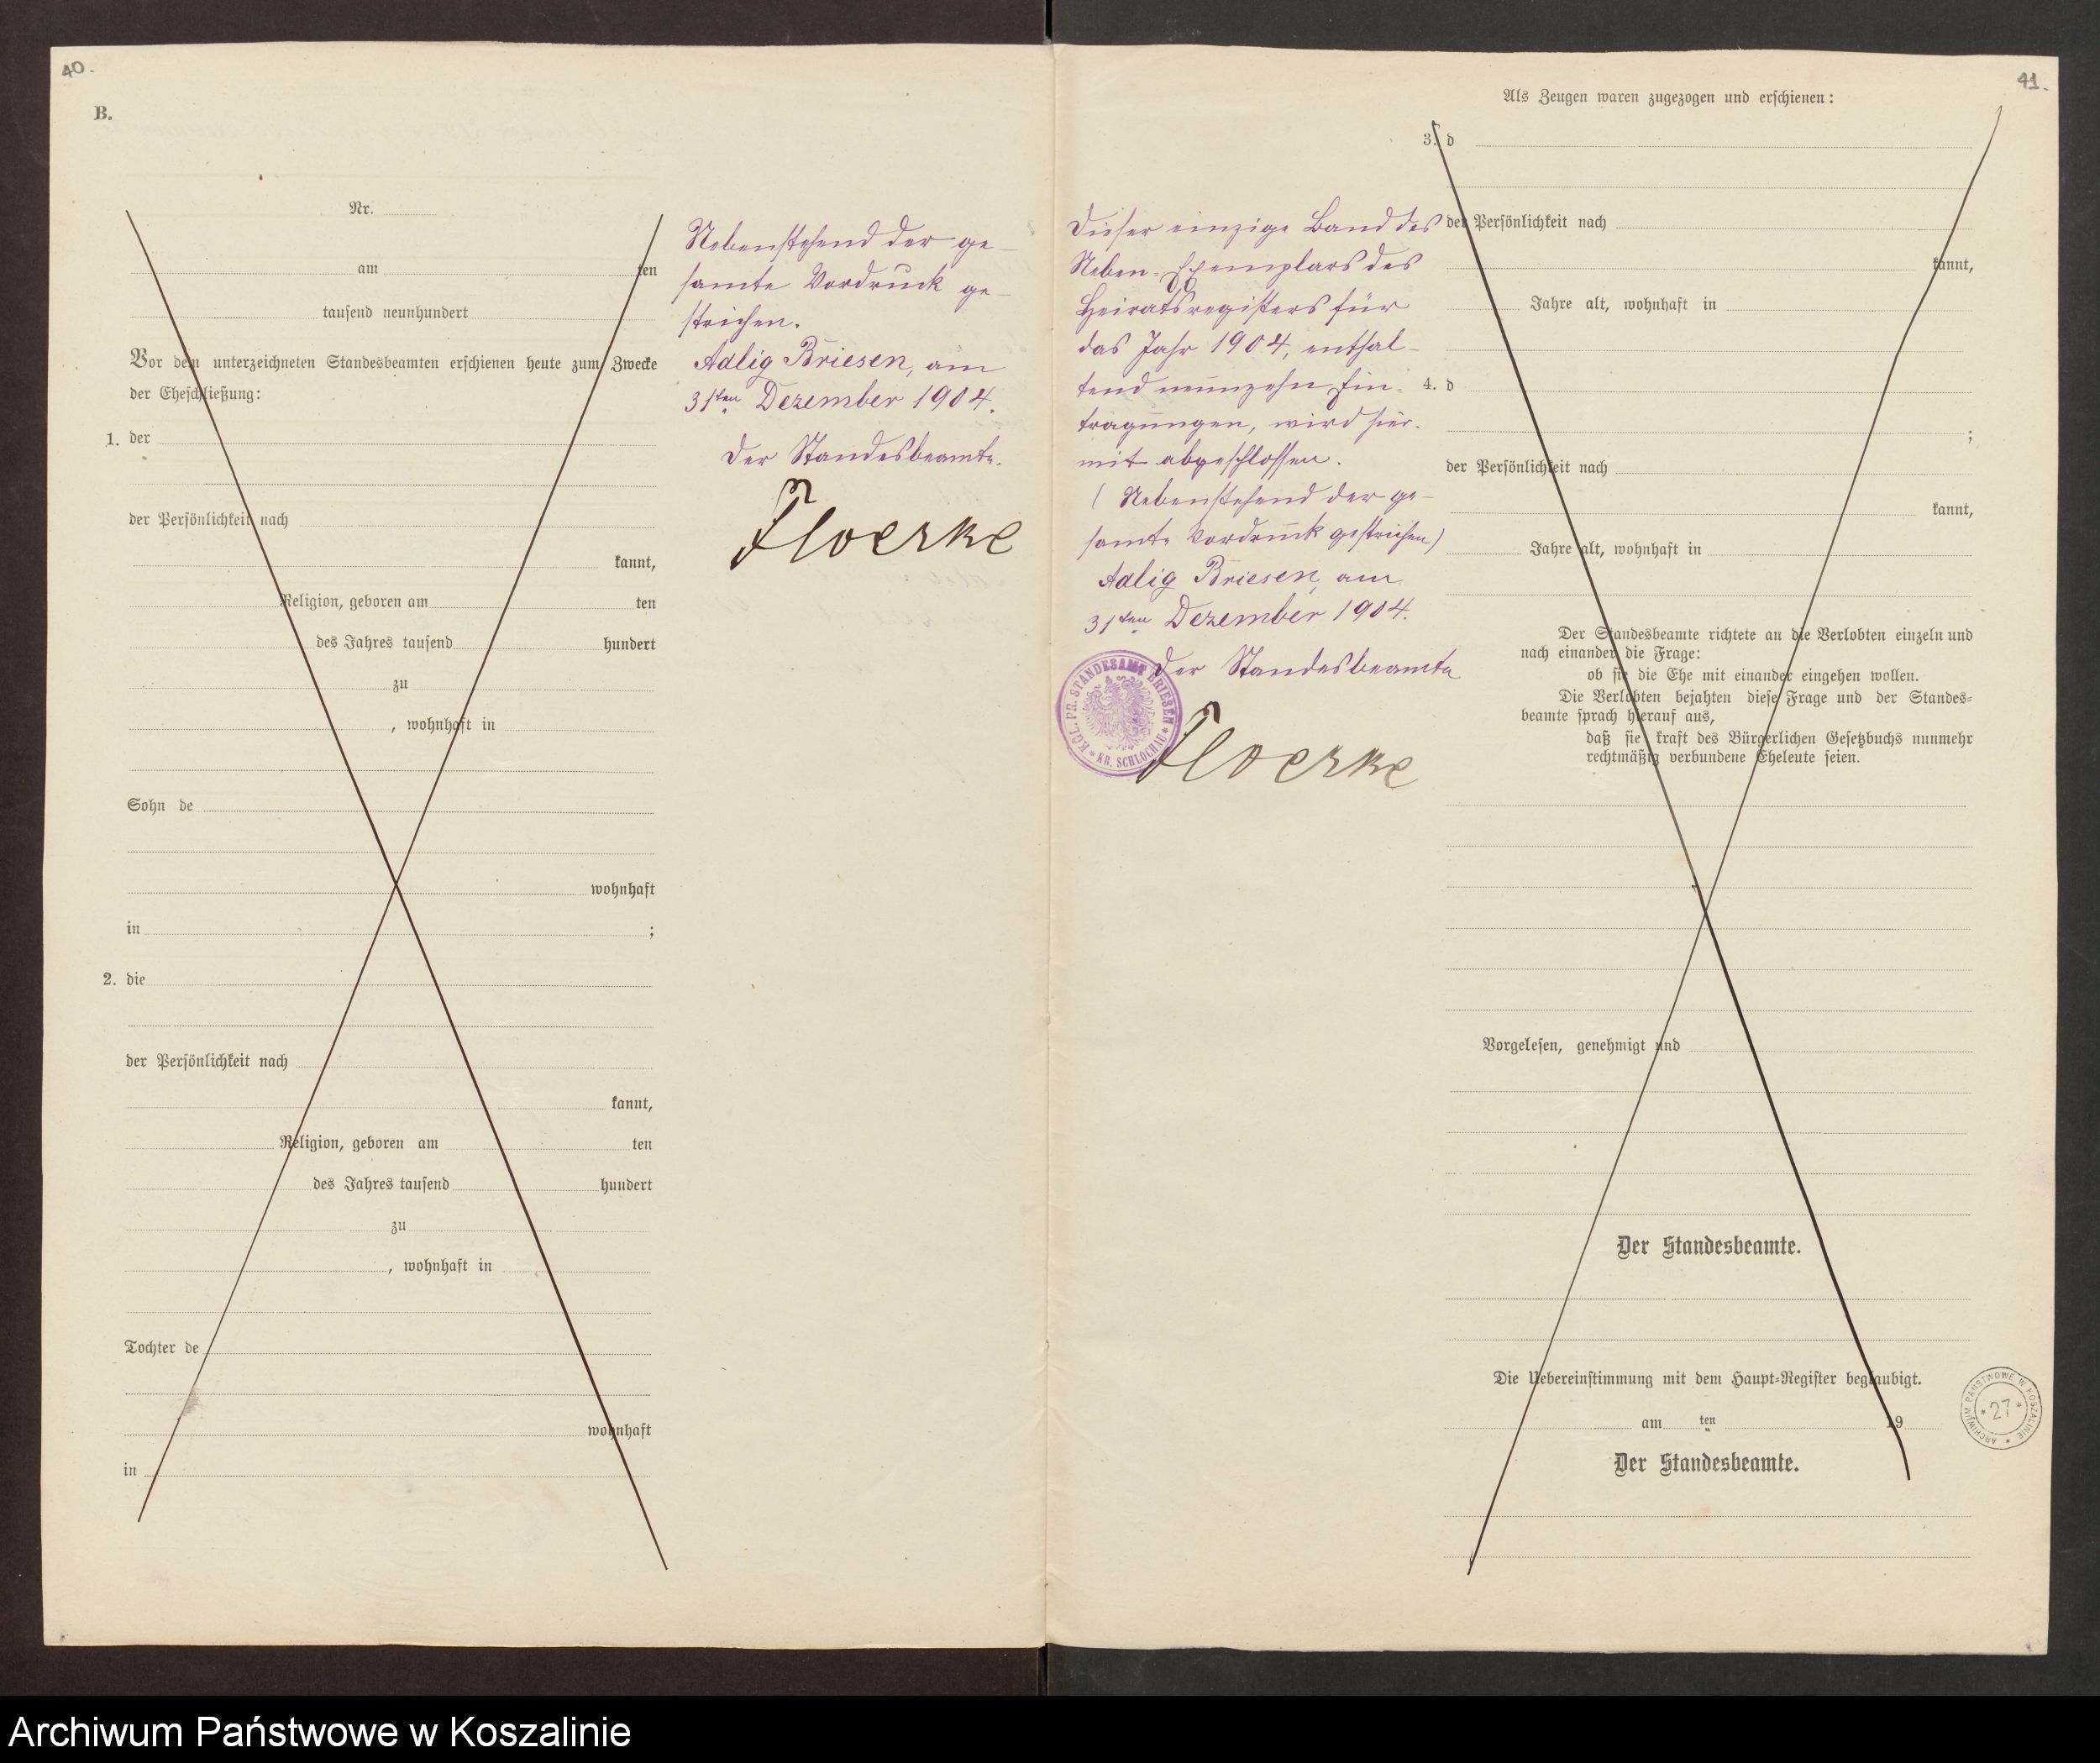 40.
B.
Nr.
am ten
tausend neunhundert
Vor dem unterzeichneten Standesbeamten erschienen heute zum Zwecke
der Eheschließung:
1. der
der Persönlichkeit nach
kannt,
Religion, geboren am ten
des Jahres tausend hundert
zu
, wohnhaft in
Sohn de
wohnhaft
in ;
2. die
der Persönlichkeit nach
kannt,
Religion, geboren am ten
des Jahres tausend hundert
zu
, wohnhaft in
Tochter de
wohnhaft
in
Nebenstehend der ge-
samte Vordruck ge-
strichen.
Adlig Briesen, am
31ten Dezember 1904.
Der Standesbeamte.
Floerke
41.
Dieser einzige Band des
Neben-Exemplars des
Heiratsregisters für
das Jahr 1904, enthal-
tend neunzehn Ein-
tragungen, wird hier-
mit abgeschlossen.
(Nebenstehend der ge-
samte Vordruck gestrichen)
Adlig Briesen, am
31ten Dezember 1904.
Der Standesbeamte
Floerke
KGL. PR. STANDESAMT BRIESEN
* KR. SCHLOCHAU *
Als Zeugen waren zugezogen und erschienen:
3. d
der Persönlichkeit nach
kannt,
Jahre alt, wohnhaft in
4. d
;
der Persönlichkeit nach
kannt,
Jahre alt, wohnhaft in
Der Standesbeamte richtete an die Verlobten einzeln und
nach einander die Frage:
ob sie die Ehe mit einander eingehen wollen.
Die Verlobten bejahten diese Frage und der Standes-
beamte sprach hierauf aus,
daß sie kraft des Bürgerlichen Gesetzbuchs nunmehr
rechtmäßig verbundene Eheleute seien.
Vorgelesen, genehmigt und
Der Standesbeamte.
Die Uebereinstimmung mit dem Haupt-Register beglaubigt.
am ten 19
Der Standesbeamte.
ARCHIWUM PAŃSTWOWE W KOSZALINIE
* 27 *
Archiwum Państwowe w Koszalinie